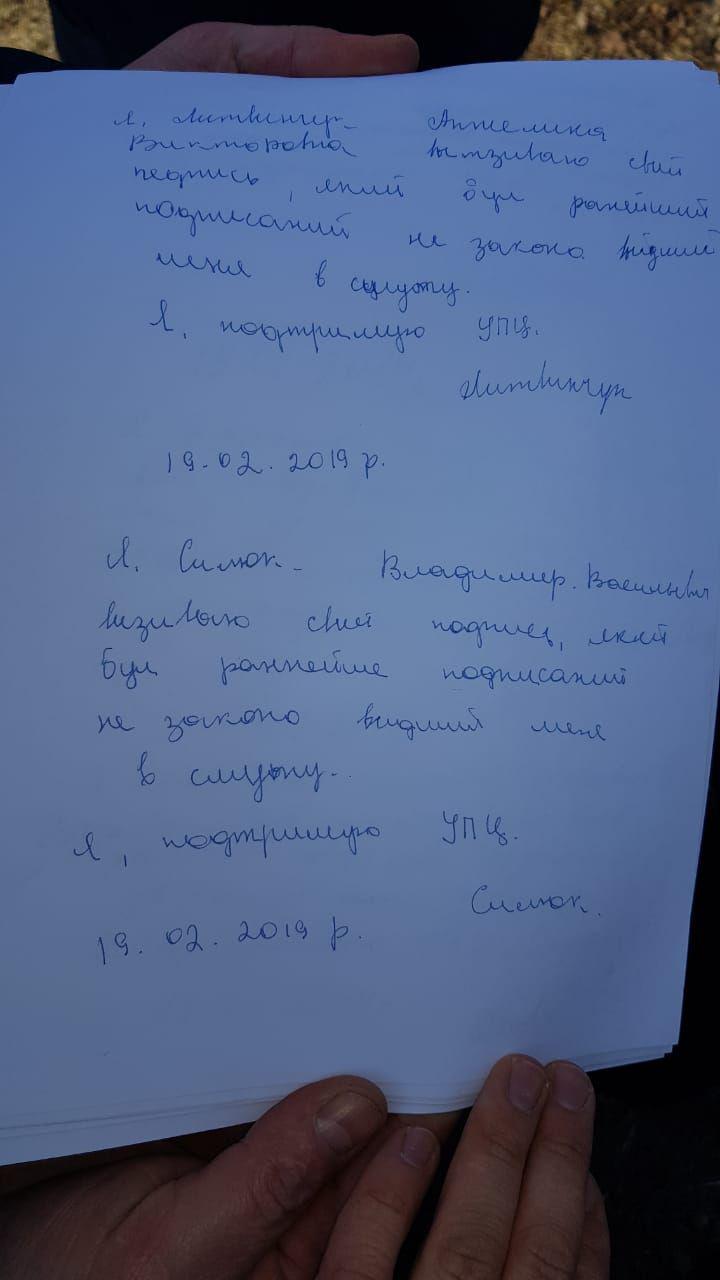 Я, Литвинчук Анжелика
Викторовна вызиваю свій
подпись, який був ранейший
подписаний не законо
меня в
Я, подтримую УПЦ.
Литвинчук
19.02.2019 р.
Я, Силюк Владимир. Васильевич
визиваю свій подпись, який
був раннейше подписаний
не законо мене
в
Я, подтримую УПЦ.
Силюк.
19.02.2019 р.